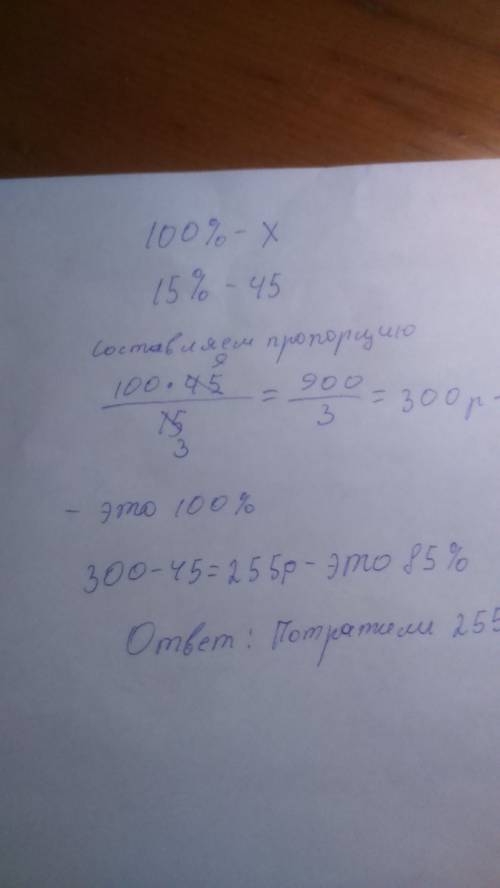 100% - х
15% - 45
составляем пропорцию
9
100 · 45 / 15 = 900 / 3 = 300 р -
3
- это 100%
300 - 45 = 255р - это 85%
Ответ: Потратили 255